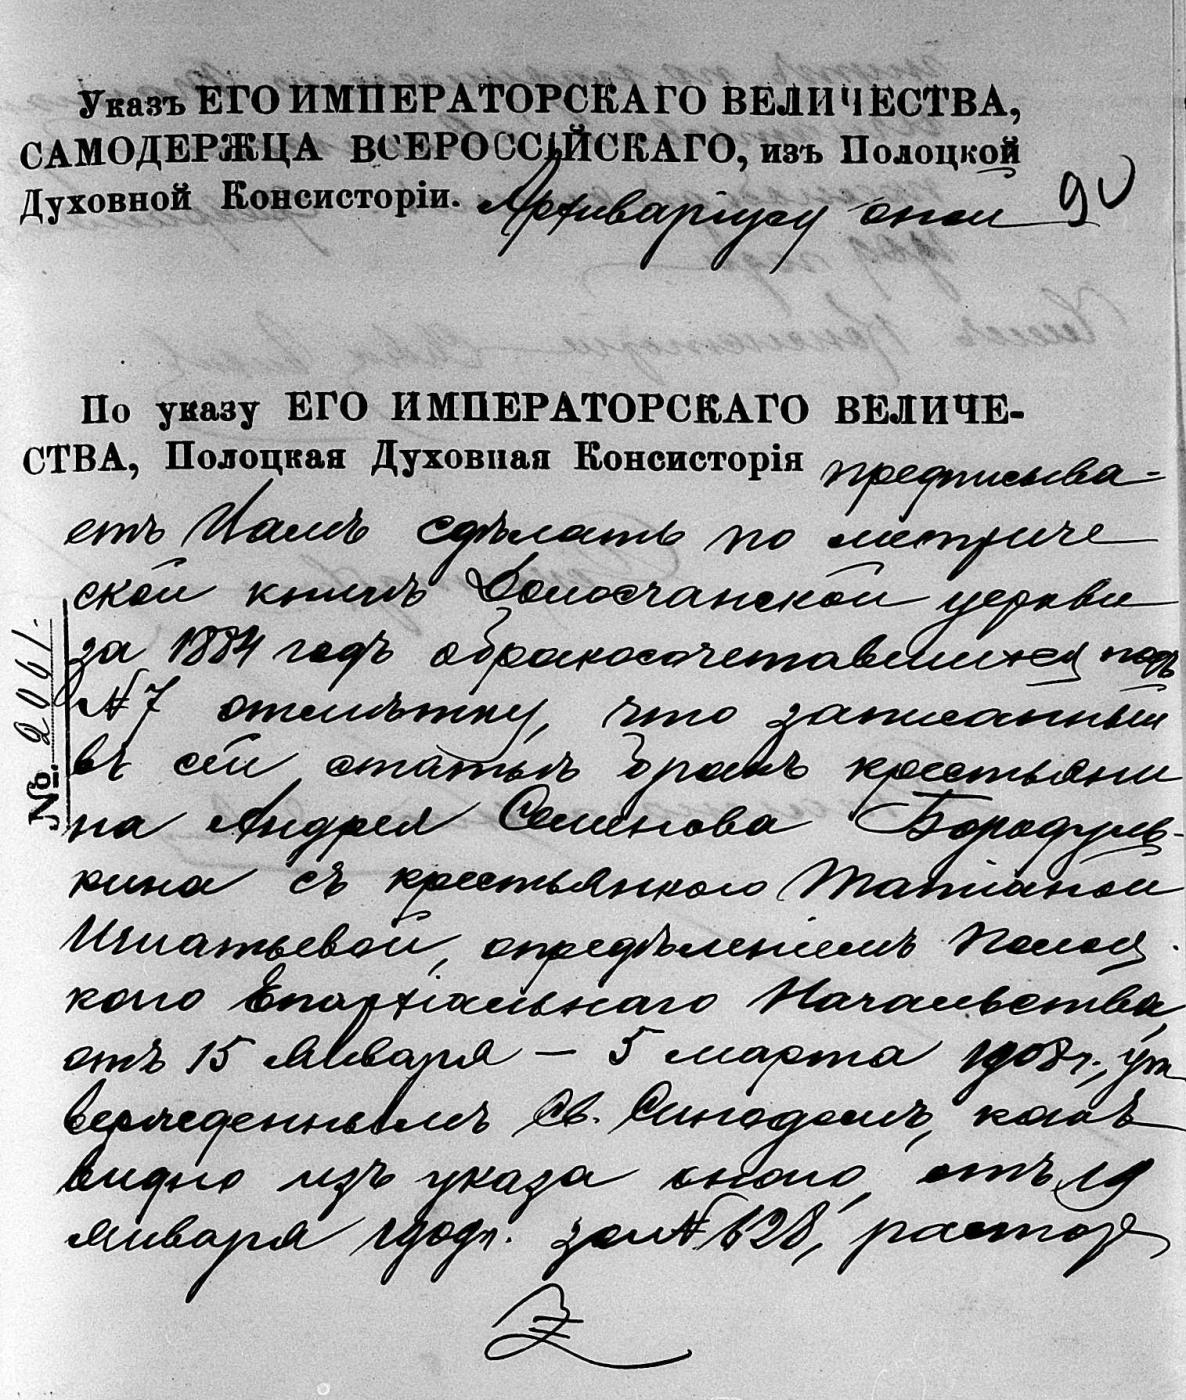 Указъ ЕГО ИМПЕРАТОРСКАГО ВЕЛИЧЕСТВА,
САМОДЕРЖЦА ВСЕРОССІЙСКАГО, изъ Полоцкой
Духовной Консисторіи. Архиваріусу оной 90
По указу ЕГО ИМПЕРАТОРСКАГО ВЕЛИЧЕ-
СТВА, Полоцкая Духовная Консисторія предписыва-
етъ Вамъ сдѣлать по метриче
ской книгѣ Долосчанской церкви
за 1884 годъ о бракосочетавшихся подъ
№ 7 отмѣтку, что записанный
въ сей статьѣ бракъ крестьяни
на Андрея Семенова Бородуль-
кина съ крестьянкою Татіаной
Игнатьевой, опредѣленіемъ Полоц
каго Епархіальнаго Начальства,
отъ 15 Января – 5 марта 1908 г., ут
вержденнымъ Св. Синодомъ, какъ
видно изъ указа оного, отъ 19
Января 1909 г. за № 628, расторг
№ 2061.